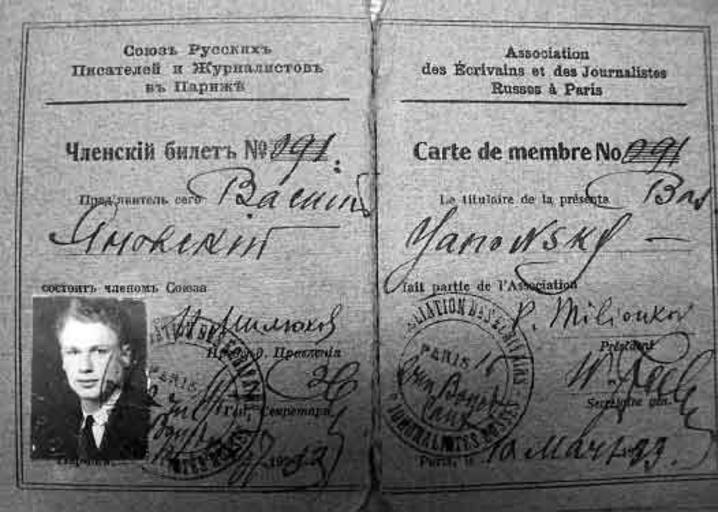 Союзъ Русскихъ
Писателей и Журналистовъ
въ Парижѣ
Членскій билетъ № 091.
Пред'явитель сего Василій
Яновскій
состоитъ членомъ Союза
П. Милюков
Предсѣд. Правленія
Ген. Секретарь
Association
des Écrivains et des Journalistes
Russes à Paris
Carte de membre No 091
Le titulaire de la présente Bas
Yanowsky —
fait partie de l'Association
P. Milioukov
Président
Secrétaire gén.
PARIS
JOURNALISTES RUSSES
Paris, le 10 Mars 33.